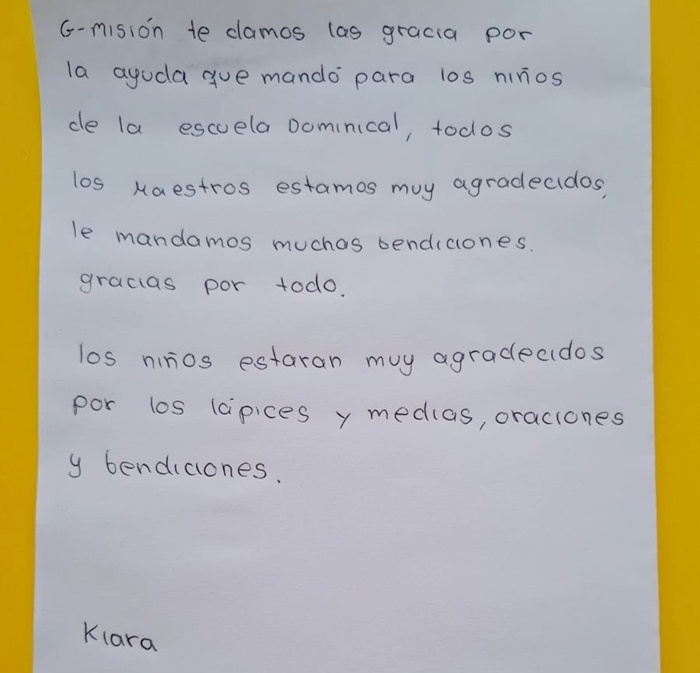 G-misión te damos las gracia por
la ayuda que mandó para los niños
de la escuela Dominical, todos
los Maestros estamos muy agradecidos,
le mandamos muchas bendiciones.
gracias por todo.
los niños estaran muy agradecidos
por los lápices y medias, oraciones
y bendiciones.
Kiara